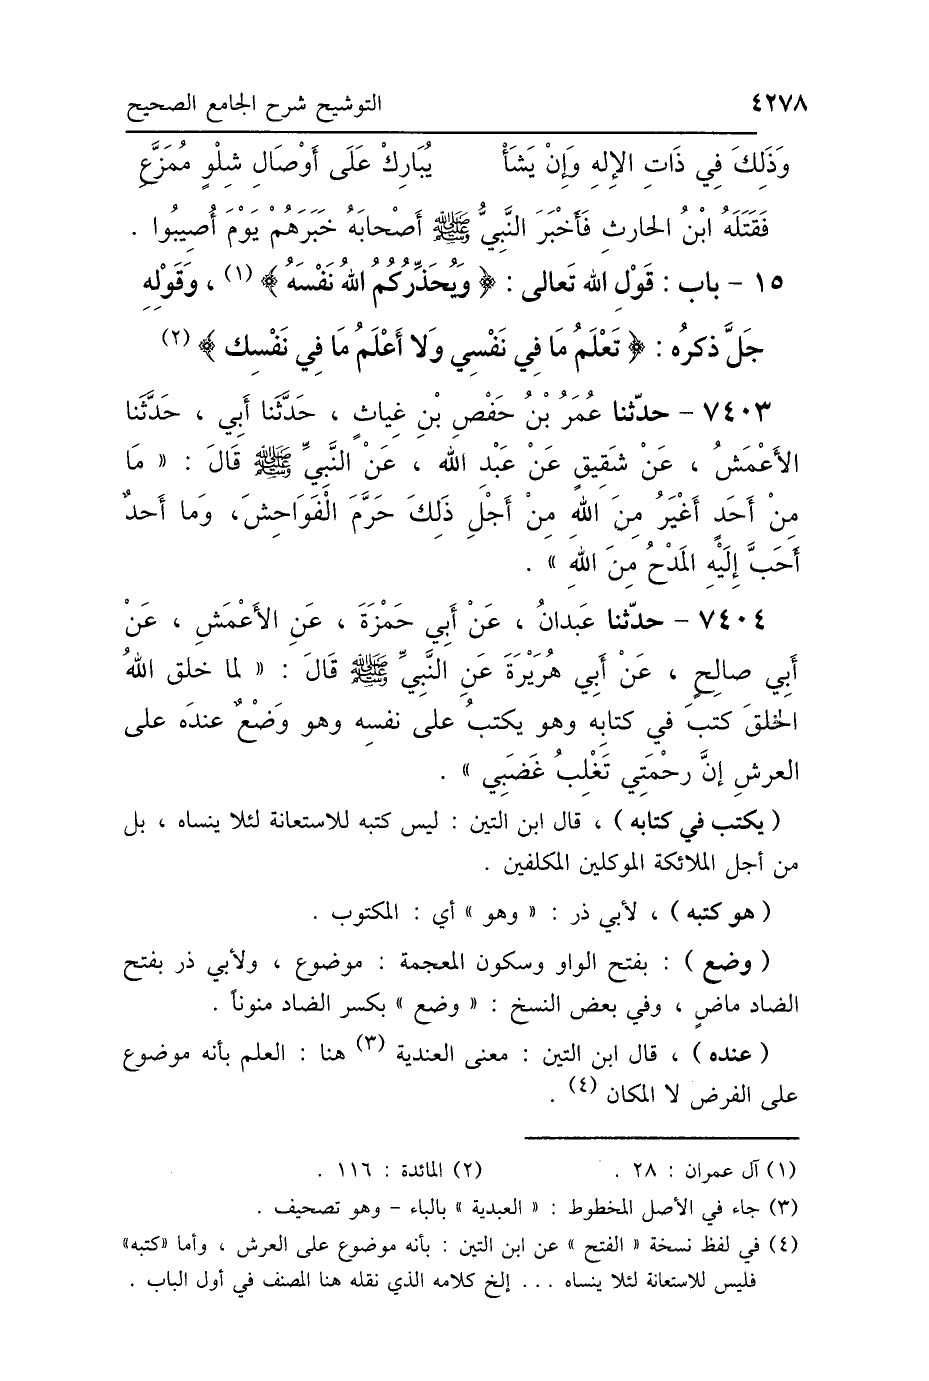 ٤٢٧٨ التوشيح شرح الجامع الصحيح
وَذَلِكَ فِي ذَاتِ الإِلهِ وَإِنْ يَشَأْ يُبَارِكْ عَلَى أَوْصَالِ شِلْوٍ مُمَزَّعِ
فَقَتَلَهُ ابْنُ الحَارِثِ فَأَخْبَرَ النَّبِيُّ ﷺ أَصْحَابَهُ خَبَرَهُمْ يَوْمَ أُصِيبُوا .
١٥ - باب : قَوْلِ الله تَعالى : ﴿ وَيُحَذِّرُكُم اللهُ نَفْسَهُ ﴾ (١) ، وَقَوْلِهِ
جَلَّ ذكرُه : ﴿ تَعْلَمُ مَا فِي نَفْسِي وَلا أَعْلَمُ مَا فِي نَفْسِك ﴾ (٢)
٧٤٠٣ - حدّثنا عُمَرُ بْنُ حَفْصِ بْنِ غِياثٍ ، حَدَّثَنا أَبي ، حَدَّثَنا
الأَعْمَشُ ، عَنْ شَقِيقٍ عَنْ عَبْدِ الله ، عَنْ النَّبِيِّ ﷺ قَالَ : « مَا
مِنْ أَحَدٍ أَغْيَرُ مِنَ اللهِ مِنْ أَجْلِ ذَلِكَ حَرَّمَ الْفَوَاحِشَ، وَما أَحدٌ
أَحَبَّ إِلَيْهِ المَدْحُ مِنَ اللهِ » .
٧٤٠٤ - حدّثنا عَبدانُ ، عَنْ أَبي حَمْزَةَ ، عَنِ الأَعْمَشِ ، عَنْ
أَبي صالِحٍ ، عَنْ أَبي هُرَيْرَةَ عَنِ النَّبِيِّ ﷺ قَالَ : « لما خلق اللهُ
الخلقَ كتبَ في كتابِه وهو يكتبُ على نفسِه وهو وَضْعٌ عندَه على
العرشِ إنَّ رحْمَتِي تَغْلِبُ غَضَبِي » .
( يكتب في كتابه ) ، قال ابن التين : ليس كتبه للاستعانة لئلا ينساه ، بل
من أجل الملائكة الموكلين المكلفين .
( هو كتبه ) ، لأبي ذر : « وهو » أي : المكتوب .
( وضع ) : بفتح الواو وسكون المعجمة : موضوع ، ولأبي ذر بفتح
الضاد ماضٍ ، وفي بعض النسخ : « وضع » بكسر الضاد منوناً .
( عنده ) ، قال ابن التين : معنى العندية (٣) هنا : العلم بأنه موضوع
على الفرض لا المكان (٤) .
(١) آل عمران : ٢٨ . (٢) المائدة : ١١٦ .
(٣) جاء في الأصل المخطوط : « العبدية » بالباء - وهو تصحيف .
(٤) في لفظ نسخة « الفتح » عن ابن التين : بأنه موضوع على العرش ، وأما «كتبه»
فليس للاستعانة لئلا ينساه ... إلخ كلامه الذي نقله هنا المصنف في أول الباب .